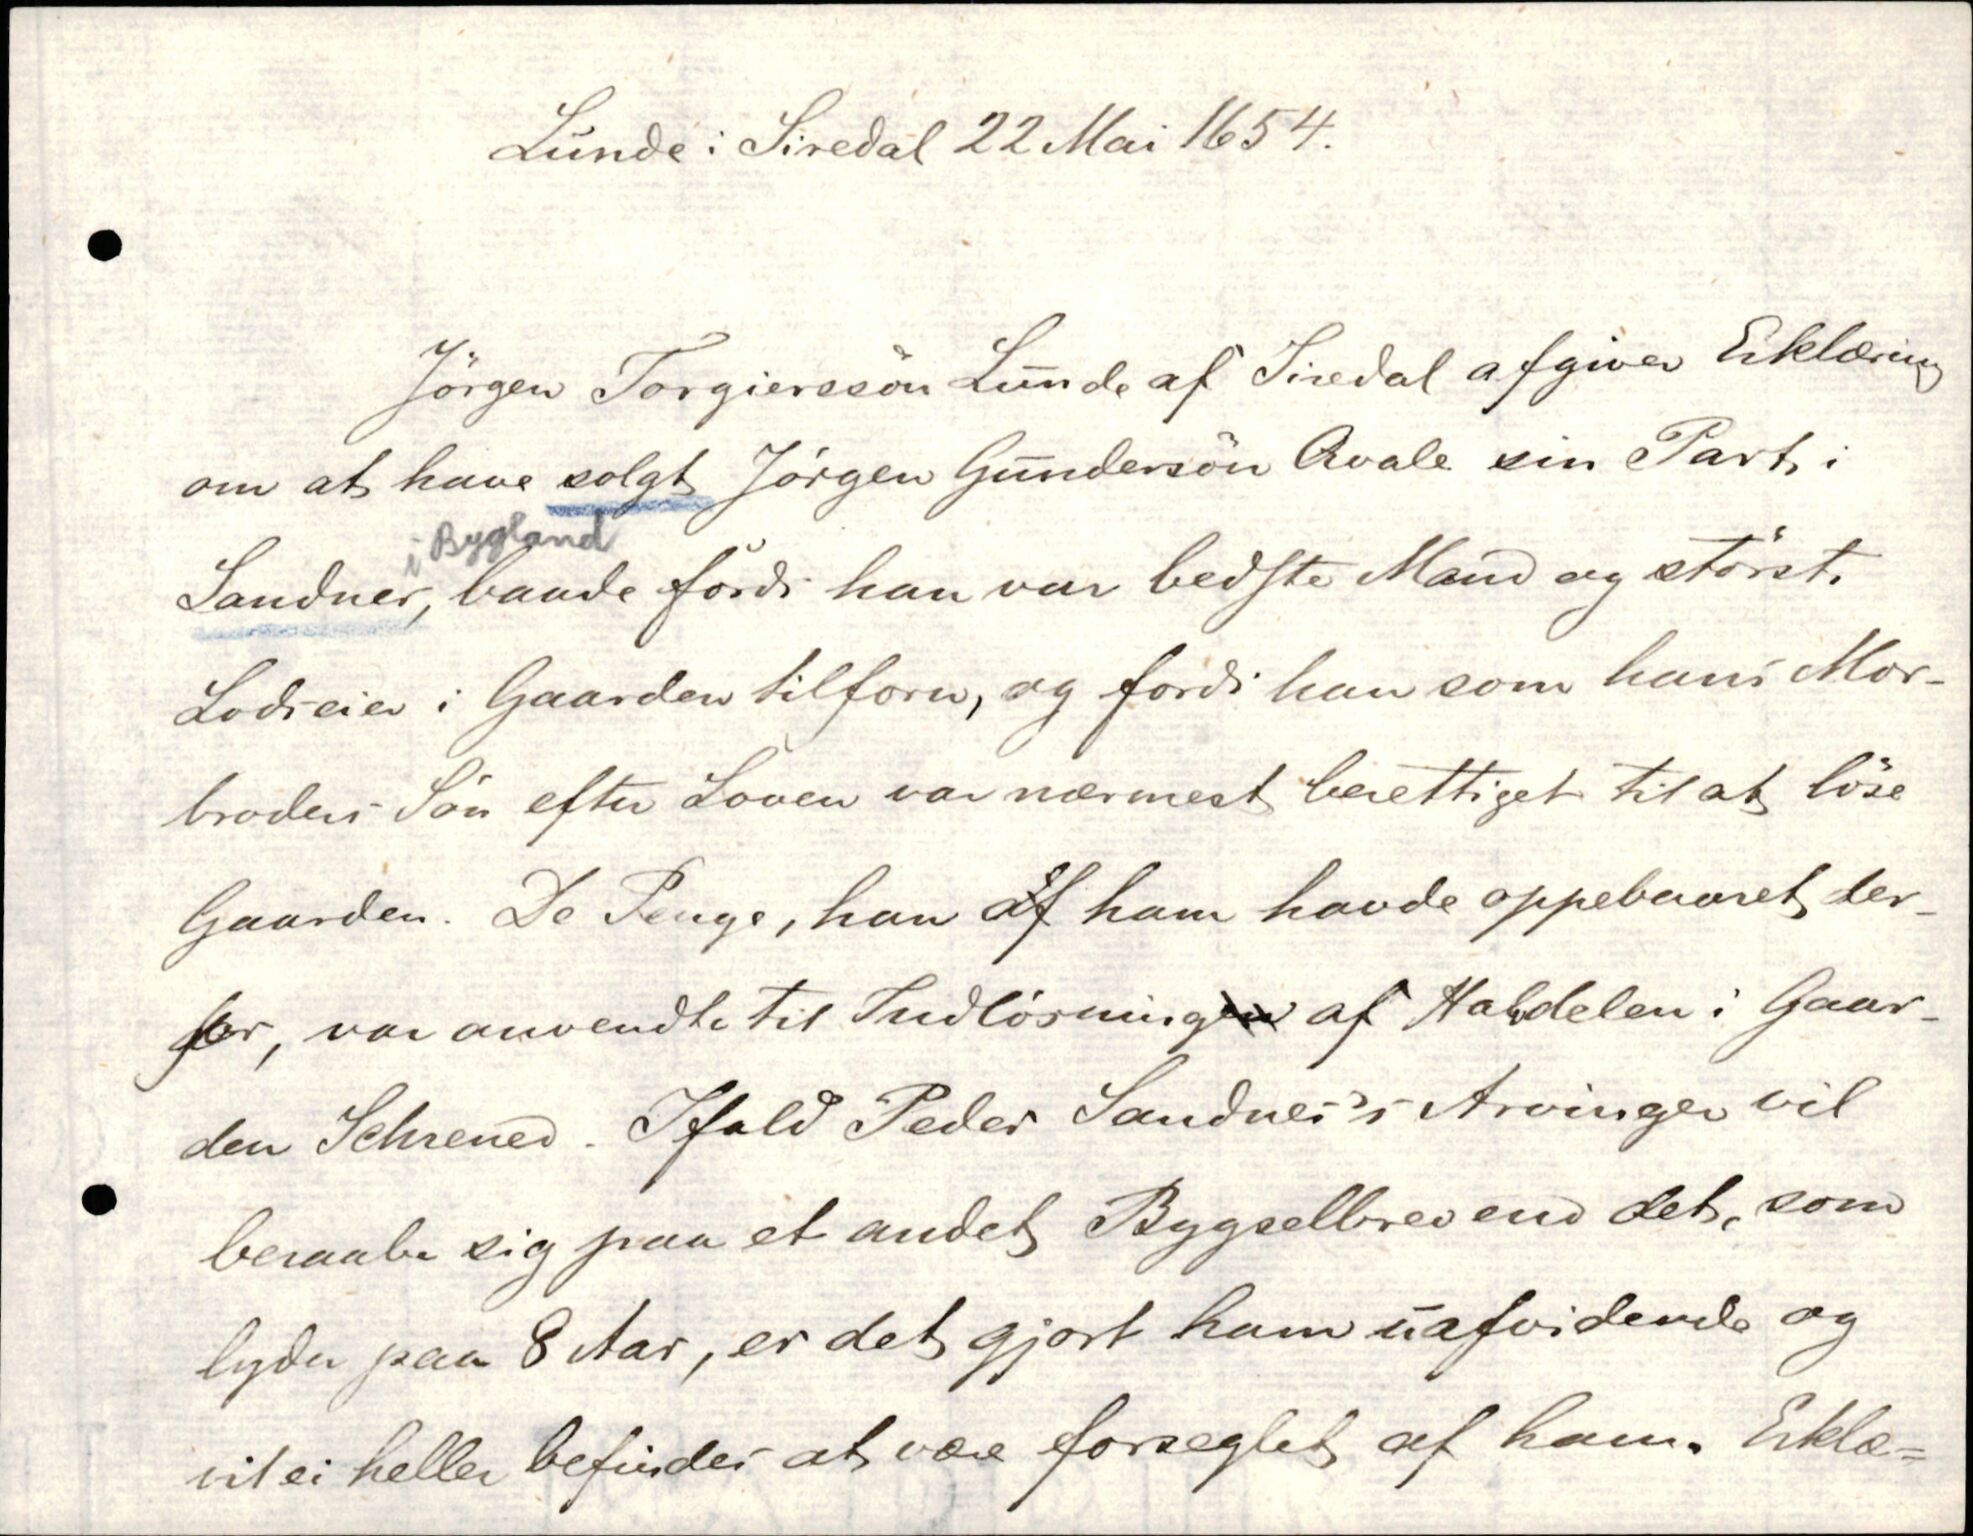 Lunde i Siredal 22 Mai 1654.
Jörgen Torgierssön Lunde af Siredal afgiver Erklæring
om at have solgt Jörgen Gundersön Qvale sin Part i
i Bygland
Sandnes, baade fordi han var bedste Mand og störste
Lodseier i Gaarden tilforn, og fordi han som hans Mor-
broders Sön efter Loven var nærmest berettiget til at löse
Gaarden. De Penge, han af ham havde oppebaaret der-
for, var anvendte til Indlösningen af Halvdelen i Gaar-
den Schrened. Ifald Peder Sandnes's Arvinger vil
beraabe sig paa et andet Bygselbrev end det, som
lyder paa 8 Aar, er det gjort ham uafvidende og
vil ei heller befindes at være forseglet af ham. Erklæ=